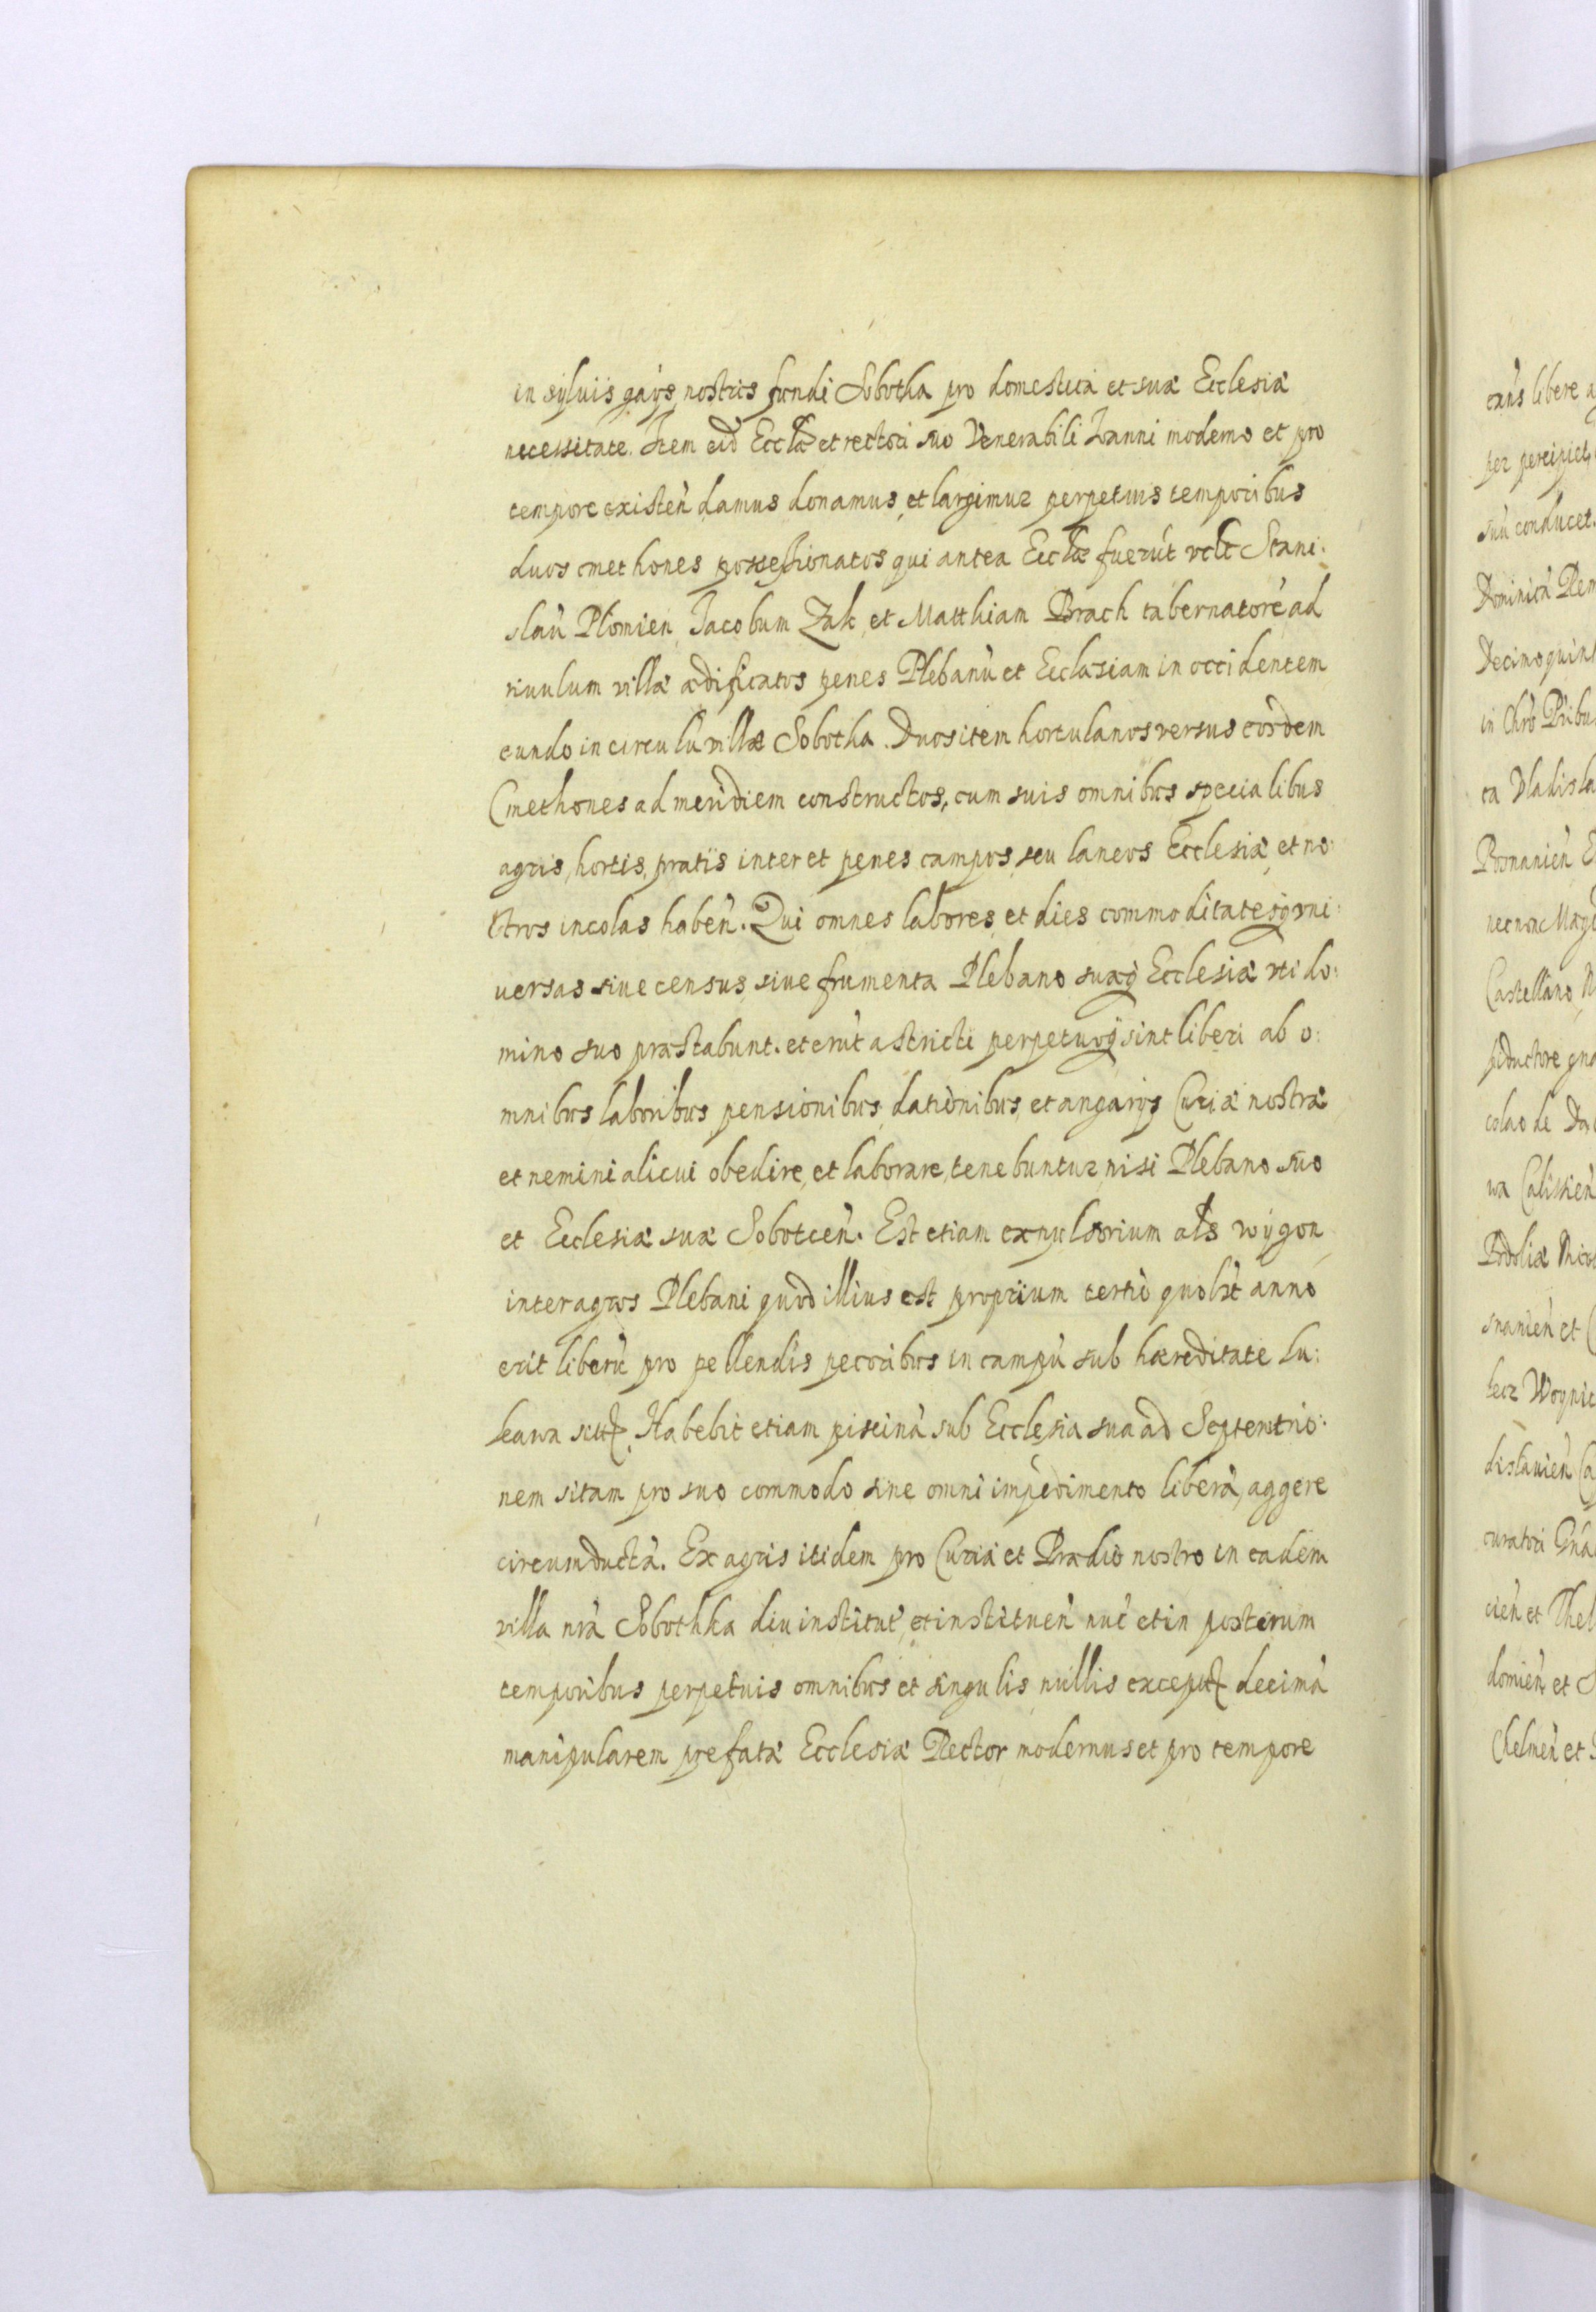 in sÿluis gaÿs nostris fundi Sobotha pro domestica et suæ Ecclesiæ
necessitate. Item eid Eccłæ et rectori suo Venerabili Ioanni moderno et pro
tempore existeñ damus donamus, et largimur perpetuis temporibus
duos cmethones possessionatos qui antea Eccłæ fuerũt velt Stani:
slaũ Plomien, Jacobum Zak, et Matthiam Brach tabernatorẽ ad
riuulum villæ ædificatos penes Plebanũ et Ecclesiam in occidentem
eundo in circulũ villæ Sobotha. Duos item hortulanos versus eosdem
Cmethones ad meridiem constructos, cum suis omnibus specialibus
agris, hortis, pratis inter et penes campos, seu laneos Ecclesiæ, et no:
stros incolas habeñ. Qui omnes labores, et dies commoditatesq̃ vni:
uersas siue census, siue frumenta Plebano suæq̃ Ecclesiæ vti do:
mino suo præstabunt. et erũt astricti perpetuoq̃ sint liberi ab o:
mnibus laboribus, pensionibus, dationibus, et angarijs Curiæ nostræ
et nemini alicui obedire, et laborare, tenebuntur, nisi Plebano suo
et Ecclesiæ suæ Sobotceñ. Est etiam expulsorium ałs wÿgon
inter agros Plebani quod illius est proprium tertio quolìt anno
erit liberũ pro pellendis pecoribus in campũ sub hæreditate Lu:
Habebit etiam piscinã sub Ecclesia sua ad Septentrio:
nem sitam pro suo commodo sine omni impedimento liberã, aggere
circumductã. Ex agris itidem pro Curia et Prædio nostro in eadem
villa nrã Sobothka diu institut, et instituen̄ nũc et in posterum
temporibus perpetuis omnibus et singulis nullis except decimã
manipularem prefatæ Ecclesiæ Rector modernus et pro tempore
erñs libere
per percipiet
suũ conducet.
Dominicã
in Chrõ
ta
Posnanieñ
necnon
Castellano
colao de
Podoliæ
snanieñ et
dislauieñ
curatori
cieñ et
et
Chelmeñ et